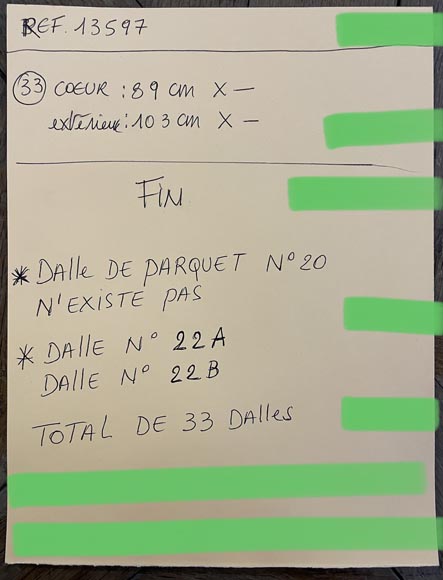 REF. 13597
33 COEUR : 89 cm X —
extérieur : 103 cm X —
FIN
* DAlle DE PARQUET N° 20
N'EXISTE PAS
* DALLE N° 22A
DALLE N° 22B
TOTAL DE 33 DAlles